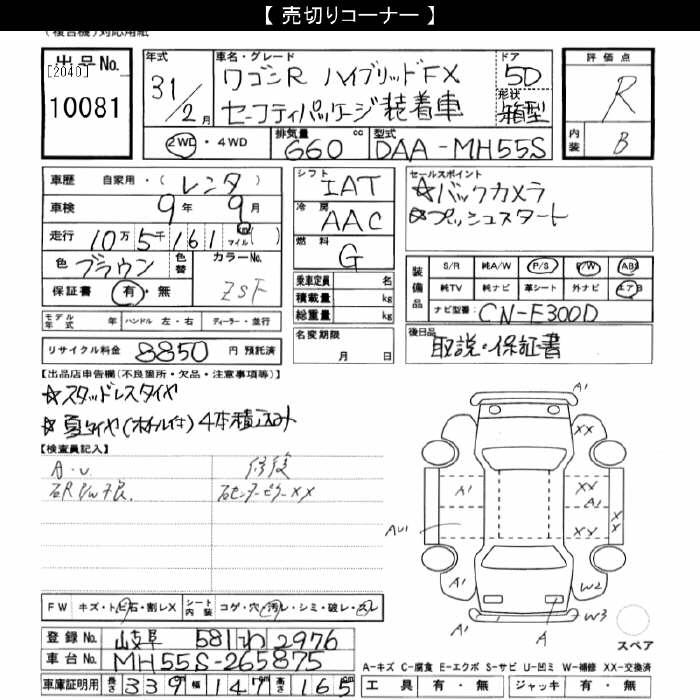 【 売切りコーナー 】
(複合機)対応用紙
出品No.
[2040]
10081
年式
31/2月
車名・グレード
ワゴンR ハイブリッドFX
セーフティパッケージ装着車
ドア
5D
形状
箱型
評価点
R
内装
B
2WD・4WD
排気量
660cc
型式
DAA-MH55S
車歴 自家用・(レンタ)
車検 9年9月
走行 10万5千161km マイル( )
色 ブラウン 色替
カラーNo.
ZSF
保証書 有・無
モデル年式 年 ハンドル 左・右 ディーラー・並行
リサイクル料金 8850 円 預託済
シフト
IAT
冷房
AAC
燃料
G
乗車定員 名
積載量 kg
総重量 kg
名変期限
月 日
セールスポイント
☆バックカメラ
☆プッシュスタート
装備品
S/R 純A/W P/S P/W ABS
純TV 純ナビ 革シート 外ナビ エアB
ナビ型番 CN-E300D
後日品
取説・保証書
【出品店申告欄(不良箇所・欠品・注意事項等)】
☆スタッドレスタイヤ
☆夏タイヤ(ホイル付)4本積込み
【検査員記入】
A・U 修復
右センターピラーXX
FW キズ・トビ石・割レX シート内装 コゲ・穴・汚レ・シミ・破レ・スレ
登録No. 岐阜 581 わ 2976
車台No. MH55S-265875
車庫証明用 長さ 339 幅 147 高さ 165
A'
XX
A'
XX
A'
XX
XX
AU1
A'
W2
A'
A
W3
スペア
A-キズ C-腐食 E-エクボ S-サビ U-凹ミ W-補修 XX-交換済
工具 有・無 ジャッキ 有・無